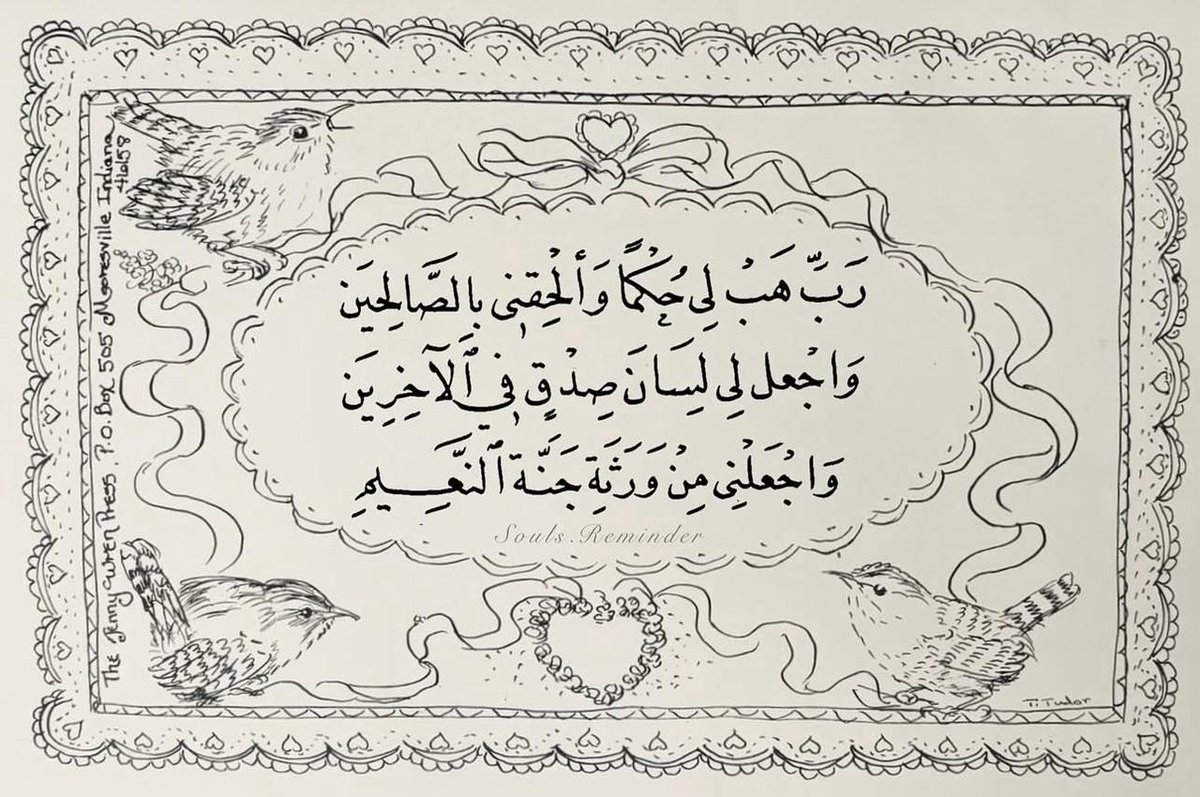 رَبِّ هَبْ لِي حُكْمًا وَأَلْحِقْنِي بِالصَّالِحِينَ
وَاجْعَل لِي لِسَانَ صِدْقٍ فِي ٱلْآخِرِينَ
وَاجْعَلْنِي مِنْ وَرَثَةِ جَنَّةِ ٱلنَّعِيمِ
Souls.Reminder
The Jenny Wren Press, P.O. Box 505 Mooresville Indiana
46158
T. Tudor